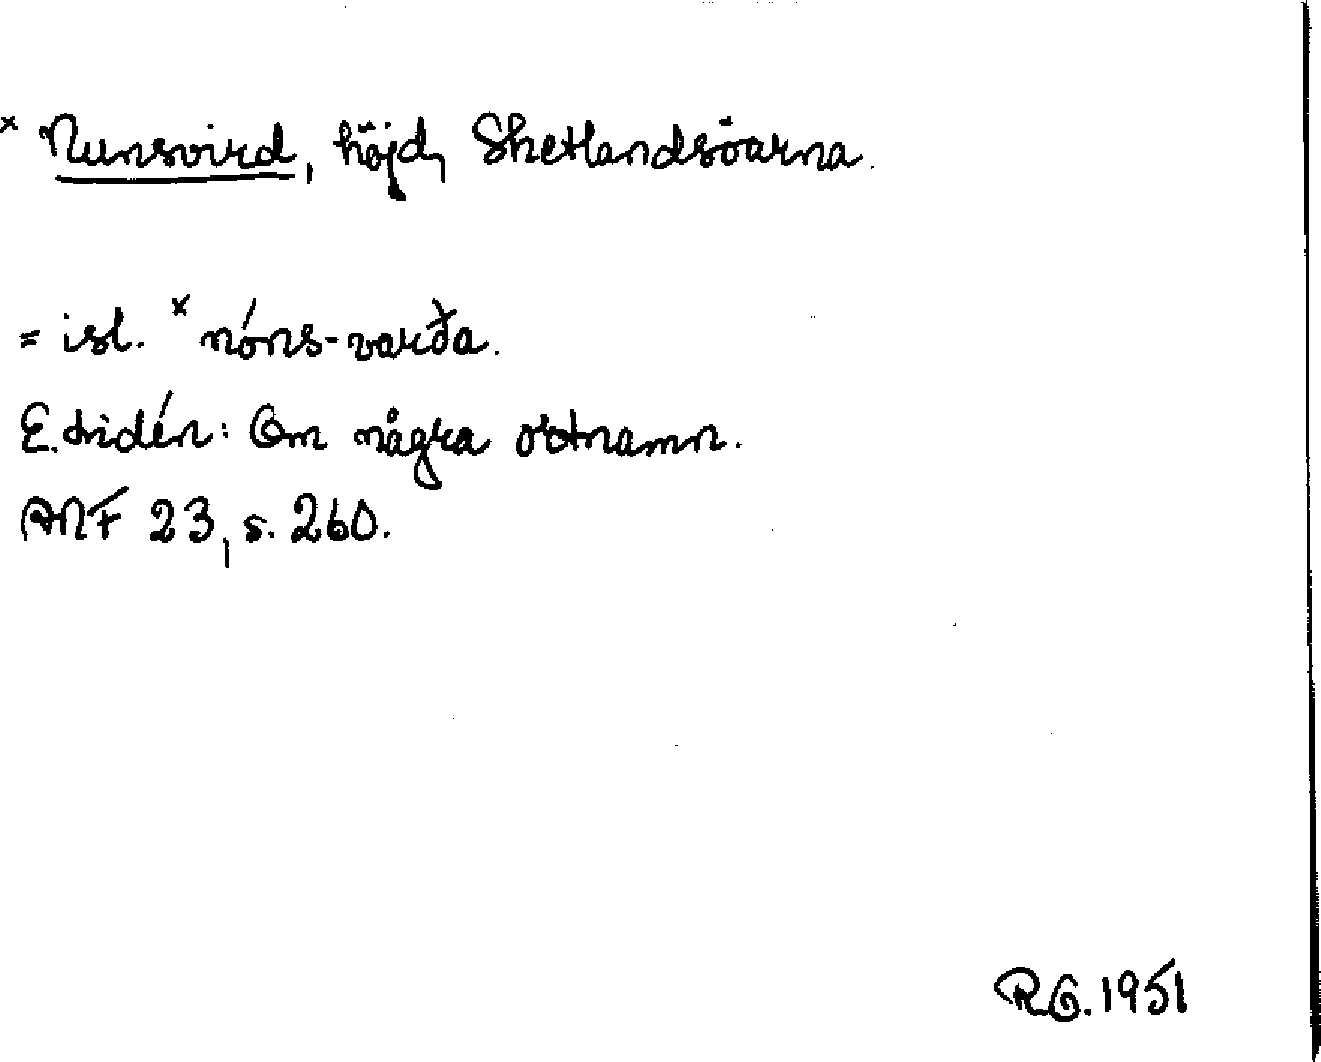 × Nunsvird, höjd, Shetlandsöarna.
= isl. ×nóns-varða.
E. Lidén: Om några ortnamn.
ANF 23, s. 260.
R.G. 1951